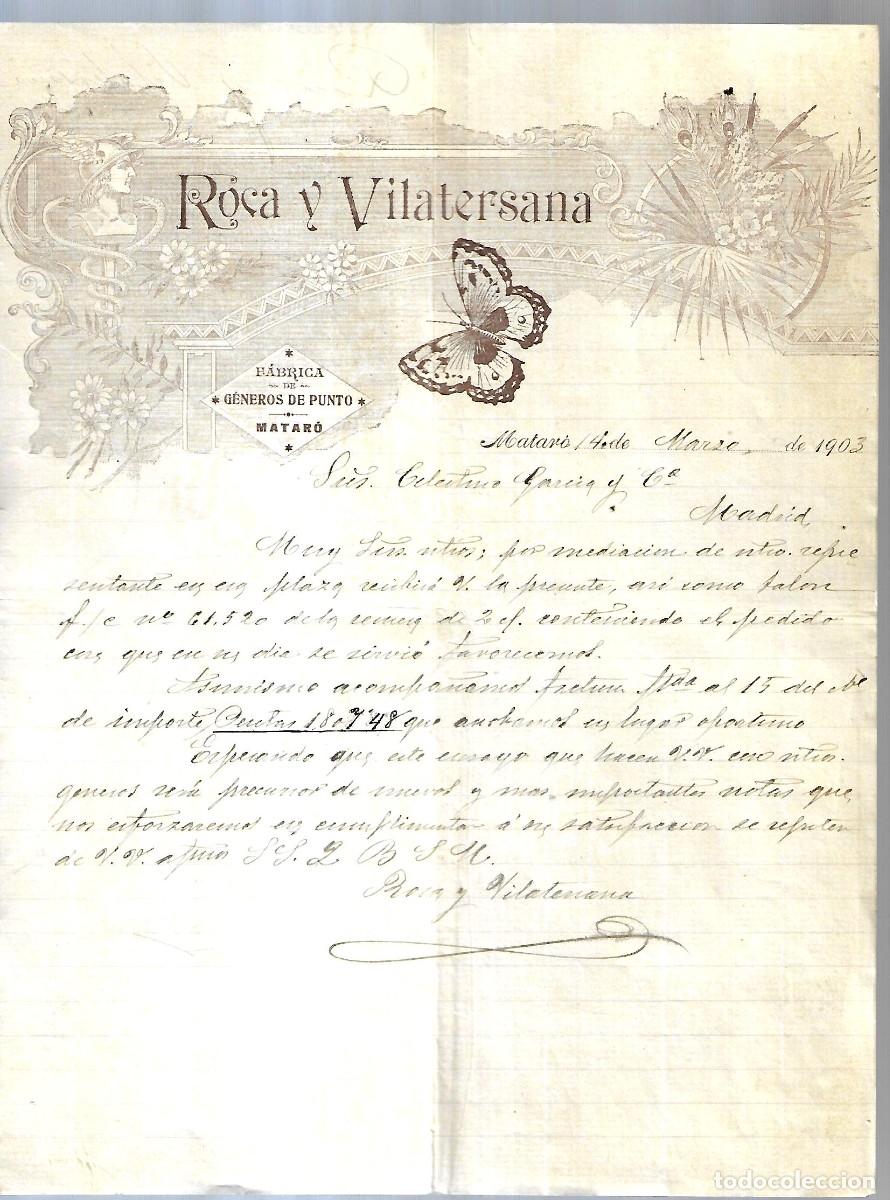 Roca y Vilatersana
FÁBRICA
DE
GÉNEROS DE PUNTO
MATARÓ
Mataró 14 de Marzo de 1903
Sres. Celestino Garcia y Cª
Madrid
Muy Sres. ntros; por mediacion de ntro. repre
sentante en esa plaza recibirá V. la presente, asi como talon
f/c nº 61.520 de la remesa de 2 c/. conteniendo el pedido
con que en su dia se sirvió favorecernos.
Asimismo acompañamos factura al 15 del
de importe Pesetas 1807'48 que anotamos en lugar oportuno
Esperando que este ensayo que hacen V.V. con ntros.
generos será precursor de nuevas y mas importantes notas que
nos esforzaremos en cumplimentar á su satisfaccion se repiten
de V.V. afmos S.S. Q B S M.
Roca y Vilatersana
todocoleccion